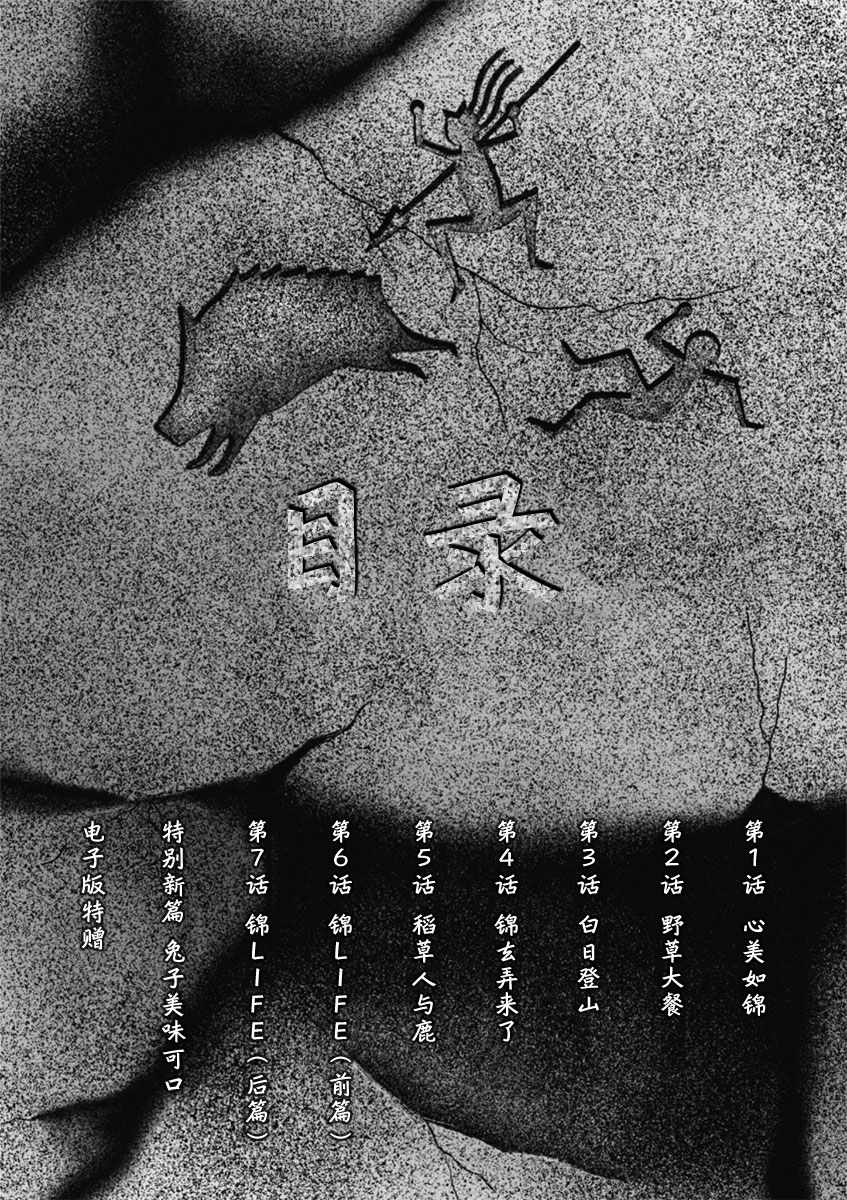 目录
第1话 心美如锦
第2话 野草大餐
第3话 白日登山
第4话 锦玄弄来了
第5话 稻草人与鹿
第6话 锦LIFE（前篇）
第7话 锦LIFE（后篇）
特别新篇 兔子美味可口
电子版特赠